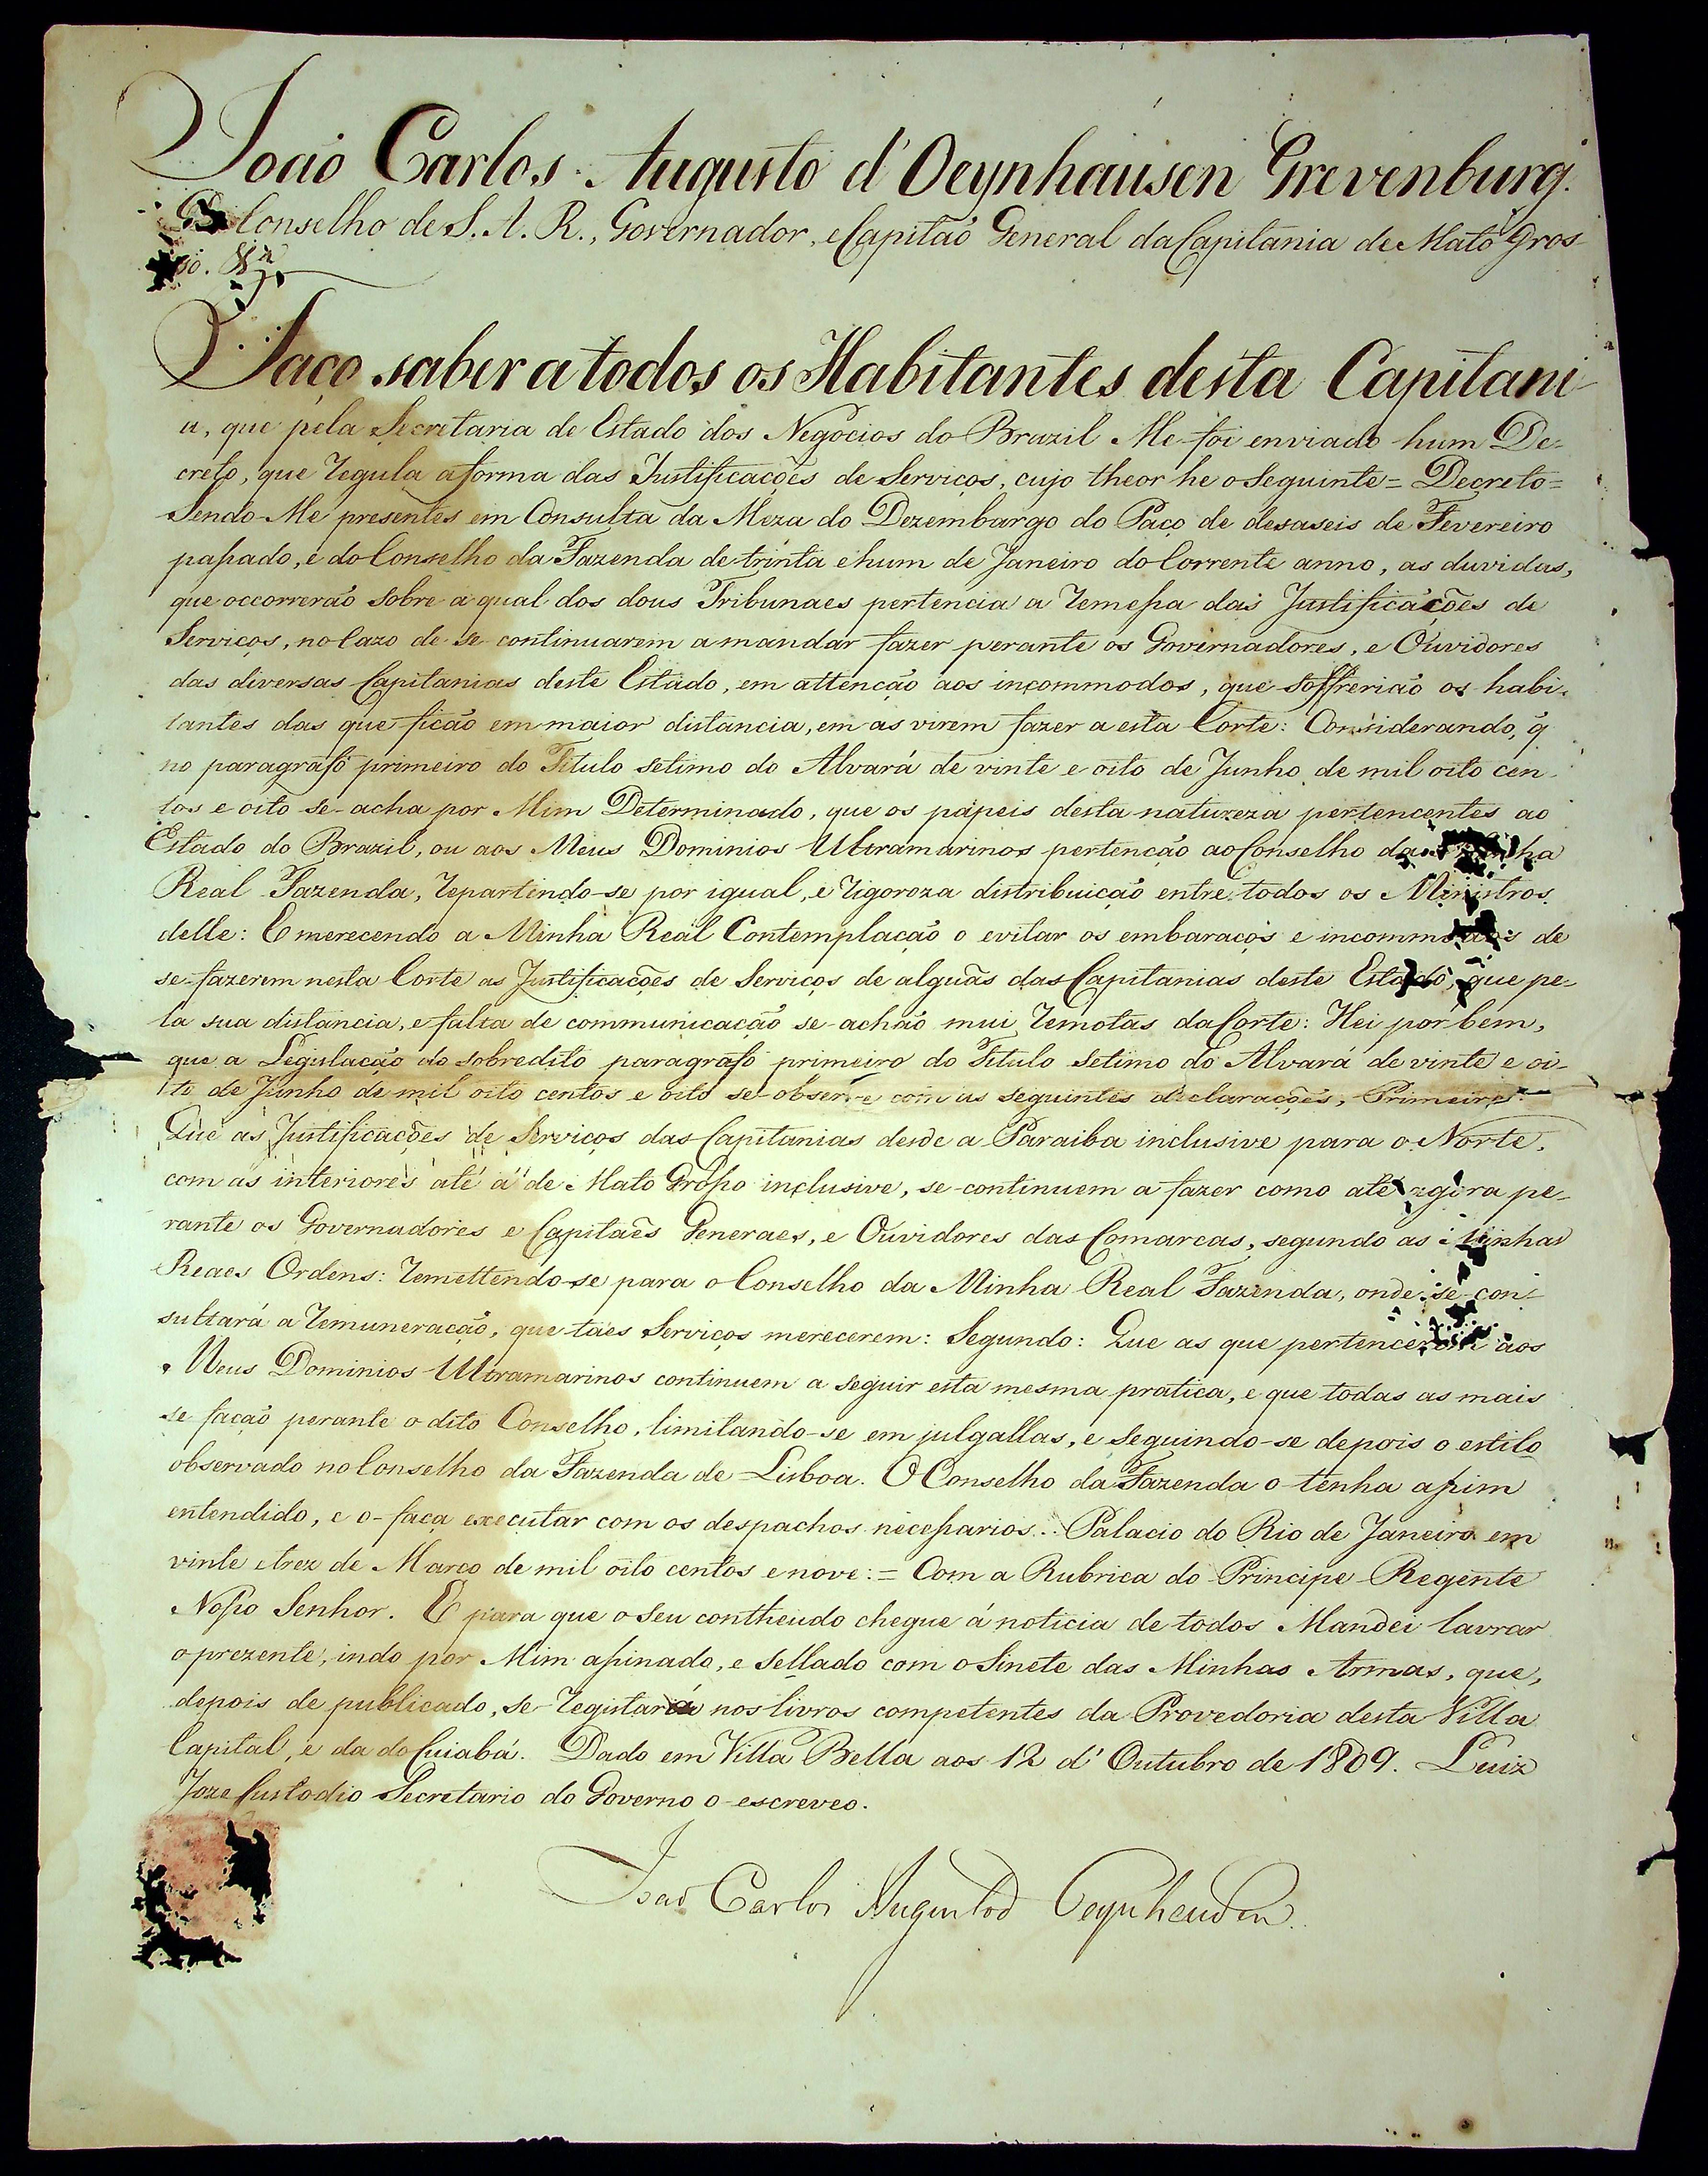 João Carlos Augusto d'Oeynhausen Grevenburg.
Do Conselho de S. A. R., Governador, e Capitão General da Capitania de Mato Gros-
so. &ª
Faço saber a todos os Habitantes desta Capitani-
a, que pela Secretaria de Estado dos Negocios do Brazil Me foi enviado hum De-
creto, que regula a forma das Justificações de Serviços, cujo theor he o seguinte = Decreto =
Sendo-Me presentes em Consulta da Meza do Dezembargo do Paço de desaseis de Fevereiro
paſsado, e do Conselho da Fazenda de trinta e hum de Janeiro do Corrente anno, as duvidas,
que occorrerão sobre a qual dos dous Tribunaes pertencia a remeſsa das Justificações de
Serviços, no Cazo de se continuarem a mandar fazer perante os Governadores, e Ouvidores
das diversas Capitanias deste Estado, em attenção aos incommodos, que soffrerião os habi-
tantes das que ficão em maior distancia, em as virem fazer a esta Corte: Considerando, q̃
no paragrafo primeiro do Titulo setimo do Alvará de vinte e oito de Junho de mil oito cen-
tos e oito se-acha por Mim Determinado, que os papeis desta natureza pertencentes ao
Estado do Brazil, ou aos Meus Dominios Ultramarinos pertenção ao Conselho da Minha
Real Fazenda, repartindo-se por igual, e rigoroza distribuição entre todos os Ministros
delle: E merecendo a Minha Real Contemplação o evitar os embaraços e incommodos de
se-fazerem nesta Corte as Justificações de Serviços de alguãs das Capitanias deste Estado, que pe-
la sua distancia, e falta de communicação se-achão mui remotas da Corte: Hei por bem,
que a Legislação do sobredito paragrafo primeiro do Titulo setimo do Alvará de vinte e oi-
to de Junho de mil oito centos e oito se-observe com as seguintes declarações, Primeiro:
Que as Justificações de Serviços das Capitanias desde a Paraiba inclusive para o Norte,
com as interiores até á de Mato Groſso inclusive, se-continuem a fazer como até agora pe-
rante os Governadores e Capitaẽs Generaes, e Ouvidores das Comarcas, segundo as Minhas
Reaes Ordens: remettendo-se para o Conselho da Minha Real Fazenda, onde se con-
sultará a remuneração, que taes Serviços merecerem: Segundo: Que as que pertencerem aos
Meus Dominios Ultramarinos continuem a seguir esta mesma pratica, e que todas as mais
se fação perante o dito Conselho, limitando-se em julgallas, e seguindo-se depois o estilo
observado no Conselho da Fazenda de Lisboa. O Conselho da Fazenda o tenha aſsim
entendido, e o-faça executar com os despachos neceſsarios. Palacio do Rio de Janeiro em
vinte e trez de Março de mil oito centos e nove: = Com a Rubrica do Principe Regente
Noſso Senhor. E para que o seu contheudo chegue á noticia de todos Mandei lavrar
o prezente, indo por Mim aſsinado, e sellado com o Sinete das Minhas Armas, que,
depois de publicado, se-registará nos livros competentes da Provedoria desta Villa
Capital, e da do Cuiabá. Dado em Villa Bella aos 12 d'Outubro de 1809. Luiz
Joze Custodio Secretario do Governo o escreveo.
João Carlos Augusto d'Oeynhausen.